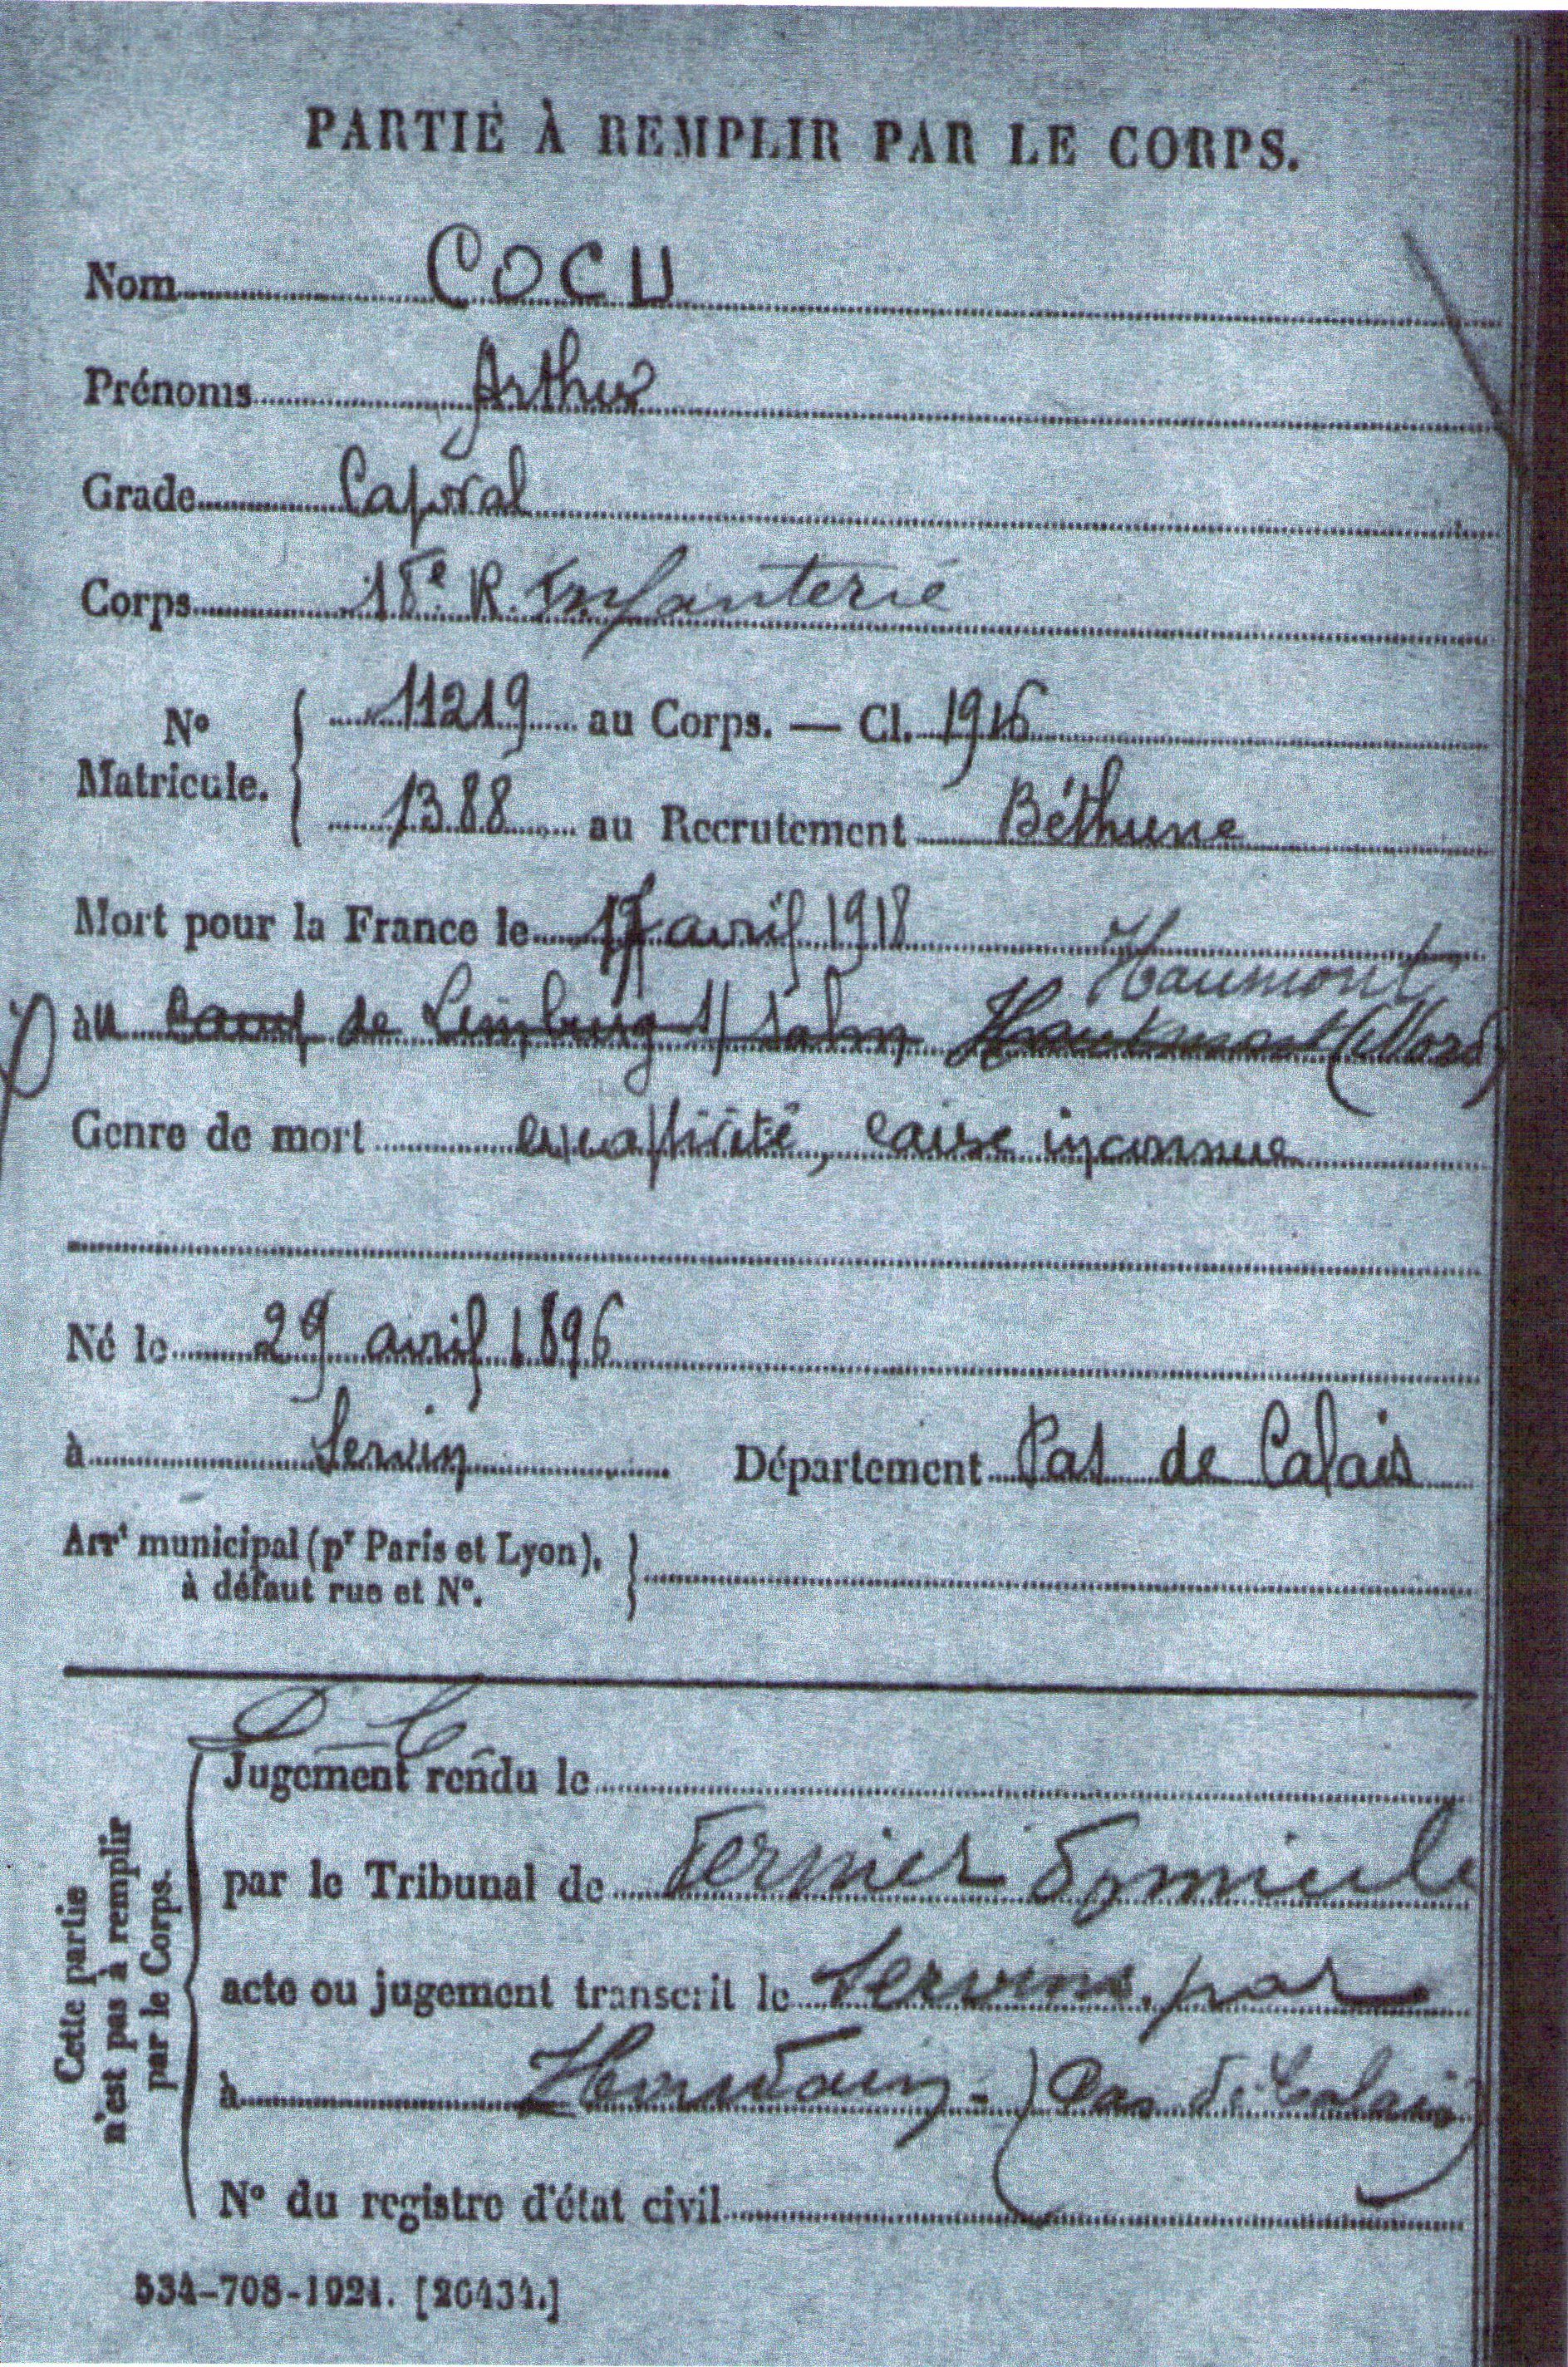 PARTIE À REMPLIR PAR LE CORPS.
Nom COCU
Prénoms Arthur
Grade Caporal
Corps 18e R. Infanterie
No Matricule. 11219 au Corps. — Cl. 1916
1388 au Recrutement Béthune
Mort pour la France le 17 avril 1918
Haumont
àu camp de Limburg s/ Haukmont (Nord)
Genre de mort en captivité, cause inconnue
Né le 29 avril 1896
à Servin Département Pas de Calais
Arrt municipal (pr Paris et Lyon),
à défaut rue et No.
D. C
Jugement rendu le
par le Tribunal de Dernier Domicile
acte ou jugement transcrit le Servins par
à Houdain - (Pas de Calais)
No du registre d'état civil
Cette partie
n'est pas à remplir
par le Corps.
534-708-1921. [26434.]